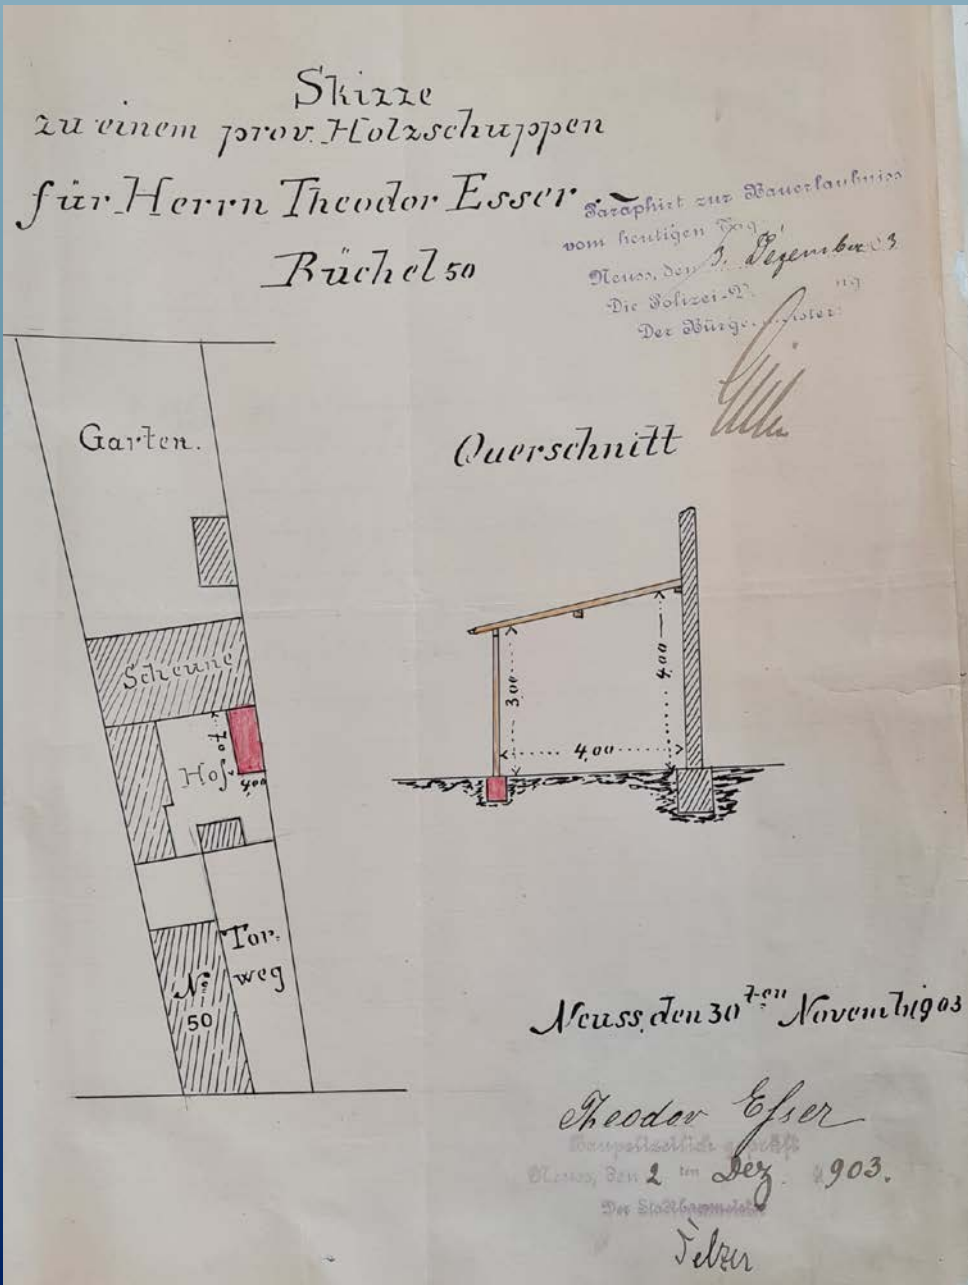 Skizze
zu einem prov. Holzschuppen
für Herrn Theodor Esser.
Büchel 50
Paraphirt zur Bauerlaubniss
vom heutigen Tage
Neuss, den 3. Dezember 03
Die Polizei-
Der Bürgermeister:
Garten.
Querschnitt
Scheune
Hof
7,00
4,00
3,00
4,00
4,00
Tor-
weg
No
50
Neuss, den 30ten Novemb. 1903
Theodor Esser
Baupolizeilich geprüft
Neuss, den 2 ten Dez. 1903.
Der Stadtbaumeister